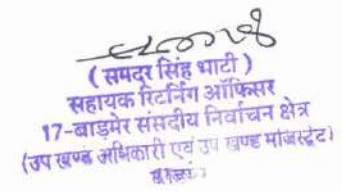 ( समदर सिंह भाटी )
सहायक रिटर्निंग ऑफिसर
17-बाड़मेर संसदीय निर्वाचन क्षेत्र
(उप खण्ड अधिकारी एवं उप खण्ड मजिस्ट्रेट)